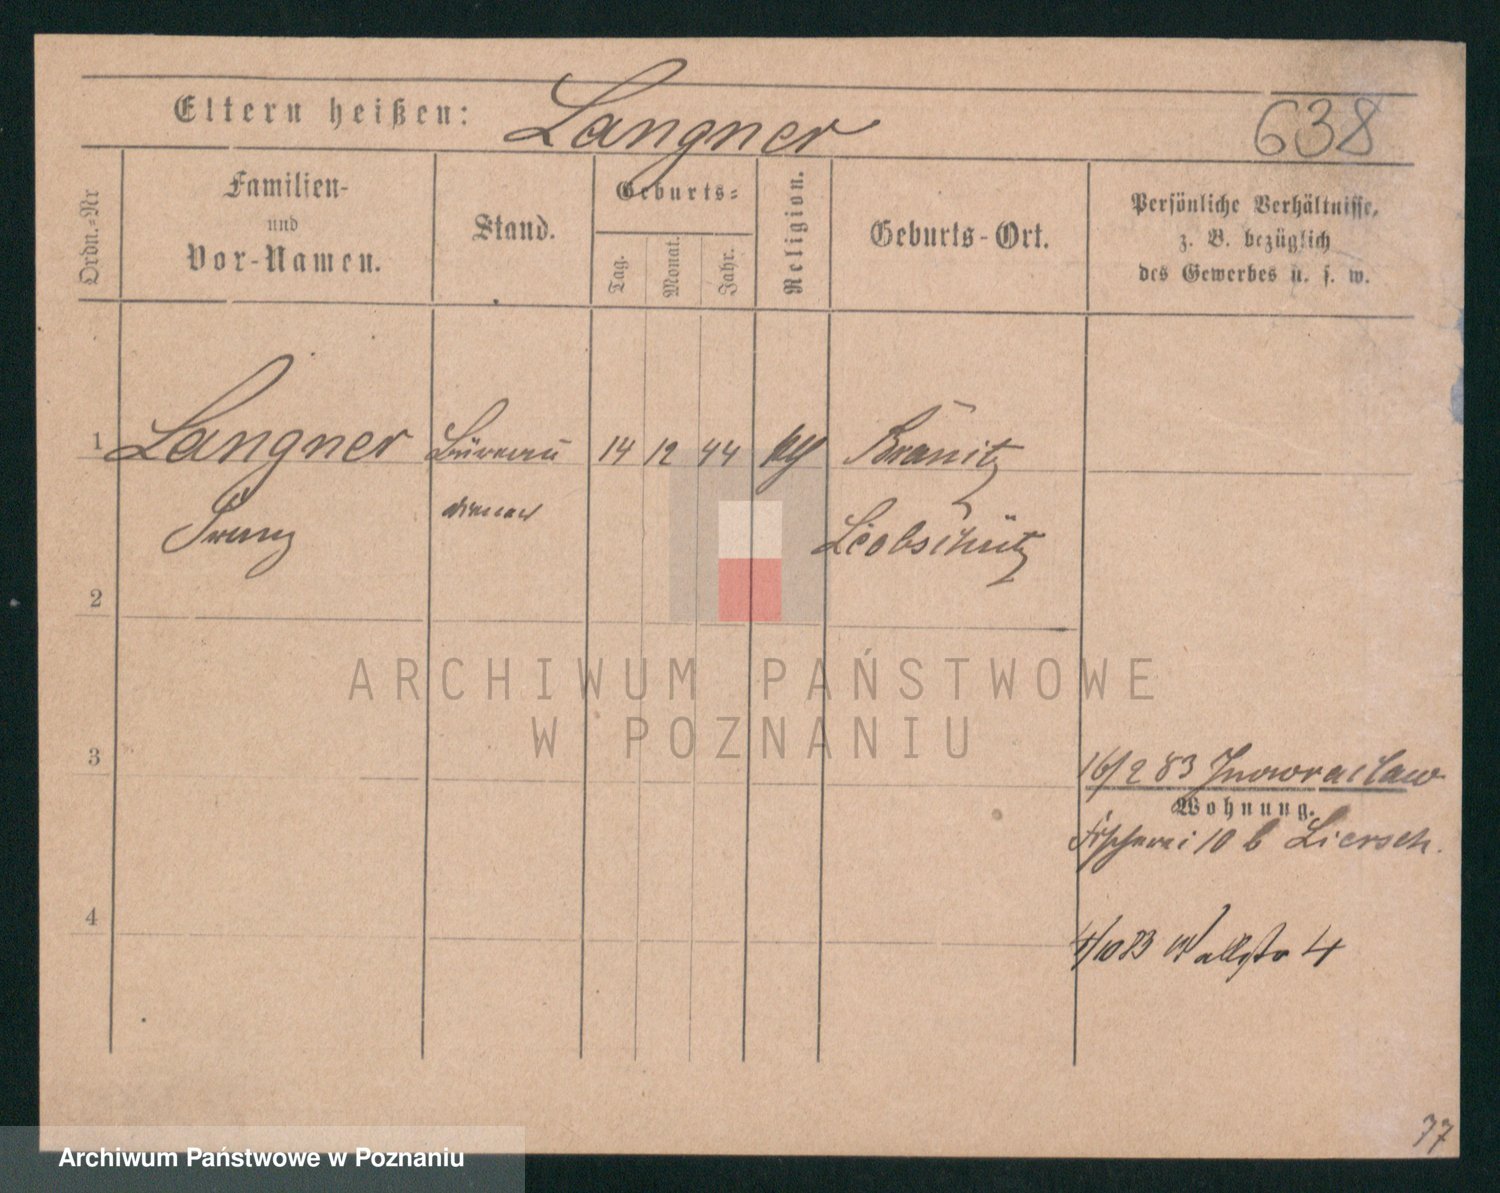 Eltern heißen: Langner 638
Ordn.-Nr
Familien-
und
Vor-Namen.
Stand.
Geburts-
Tag.
Monat.
Jahr.
Religion.
Geburts-Ort.
Persönliche Verhältnisse,
z. B. bezüglich
des Gewerbes u. s. w.
1 Langner Büreau 14 12 44 Branitz
Franz diener Leobschütz
2
ARCHIWUM PAŃSTWOWE
W POZNANIU
3
16/2 83 Inowraclaw
Wohnung.
Fischerei 10 b Liersch.
4
4/10 83 Wallstr 4
77
Archiwum Państwowe w Poznaniu